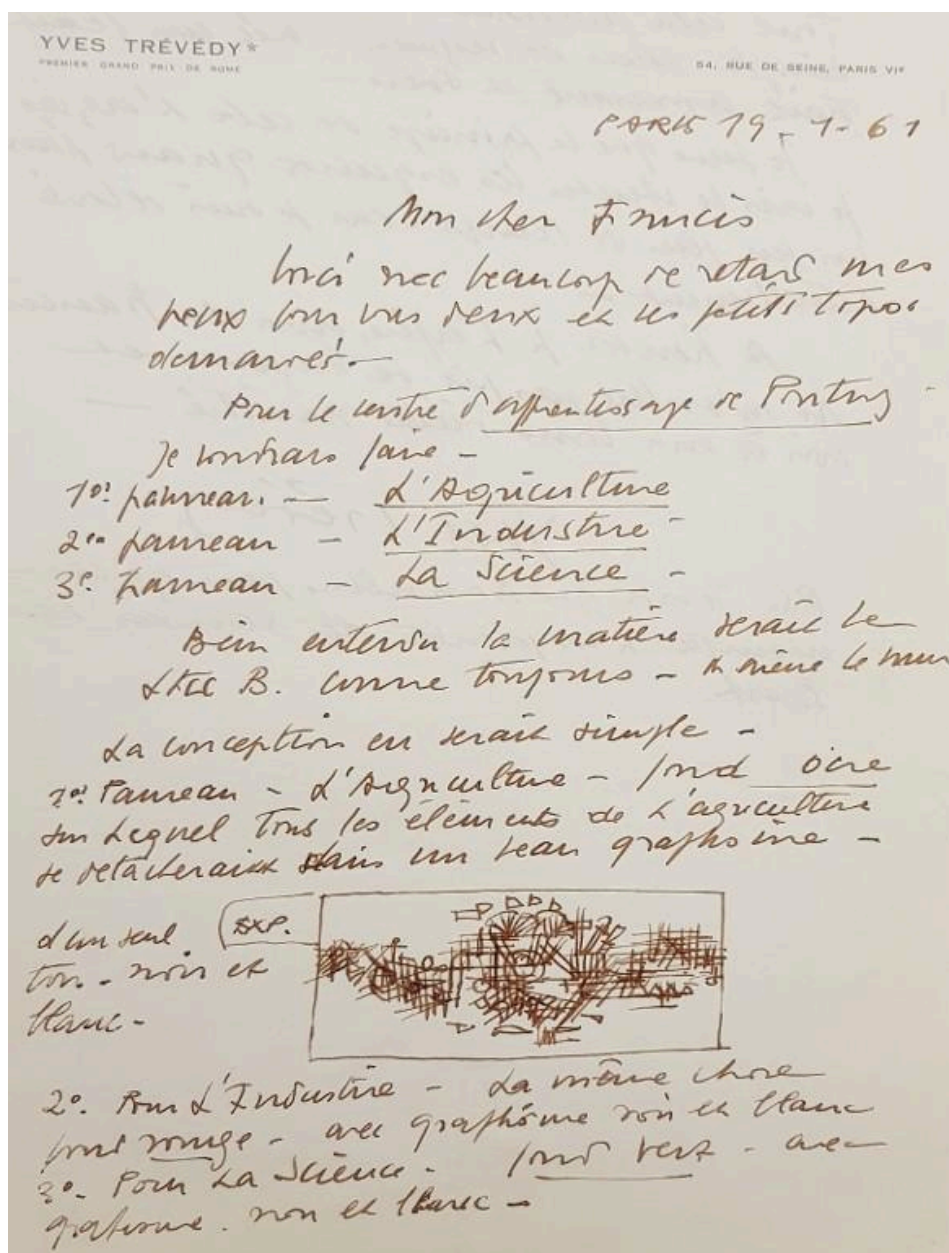 YVES TRÉVÉDY*
PREMIER GRAND PRIX DE ROME
54, RUE DE SEINE, PARIS VIe
PARIS 19-1-61
Mon cher Francis
Voici avec beaucoup de retard mes
vœux pour vous deux et les petits topos
demandés.-
Pour le centre d'apprentissage de
Je voudrais faire -
1er panneau. - L'Agriculture
2em panneau - L'Industrie -
3e. panneau - La Science -
Bien entendu la matière serait le
B. comme toujours - à même le mur
La conception en serait simple -
1er Panneau - L'Agriculture - fond ocre
sur lequel tous les éléments de L'agriculture
se détacheraient dans un beau graphisme -
d'un seul EXP.
ton - noir et
blanc-
2°. Pour L'Industrie - La même chose
fond rouge - avec graphisme noir et blanc
3°. Pour La Science - fond vert - avec
graphisme. noir et blanc -